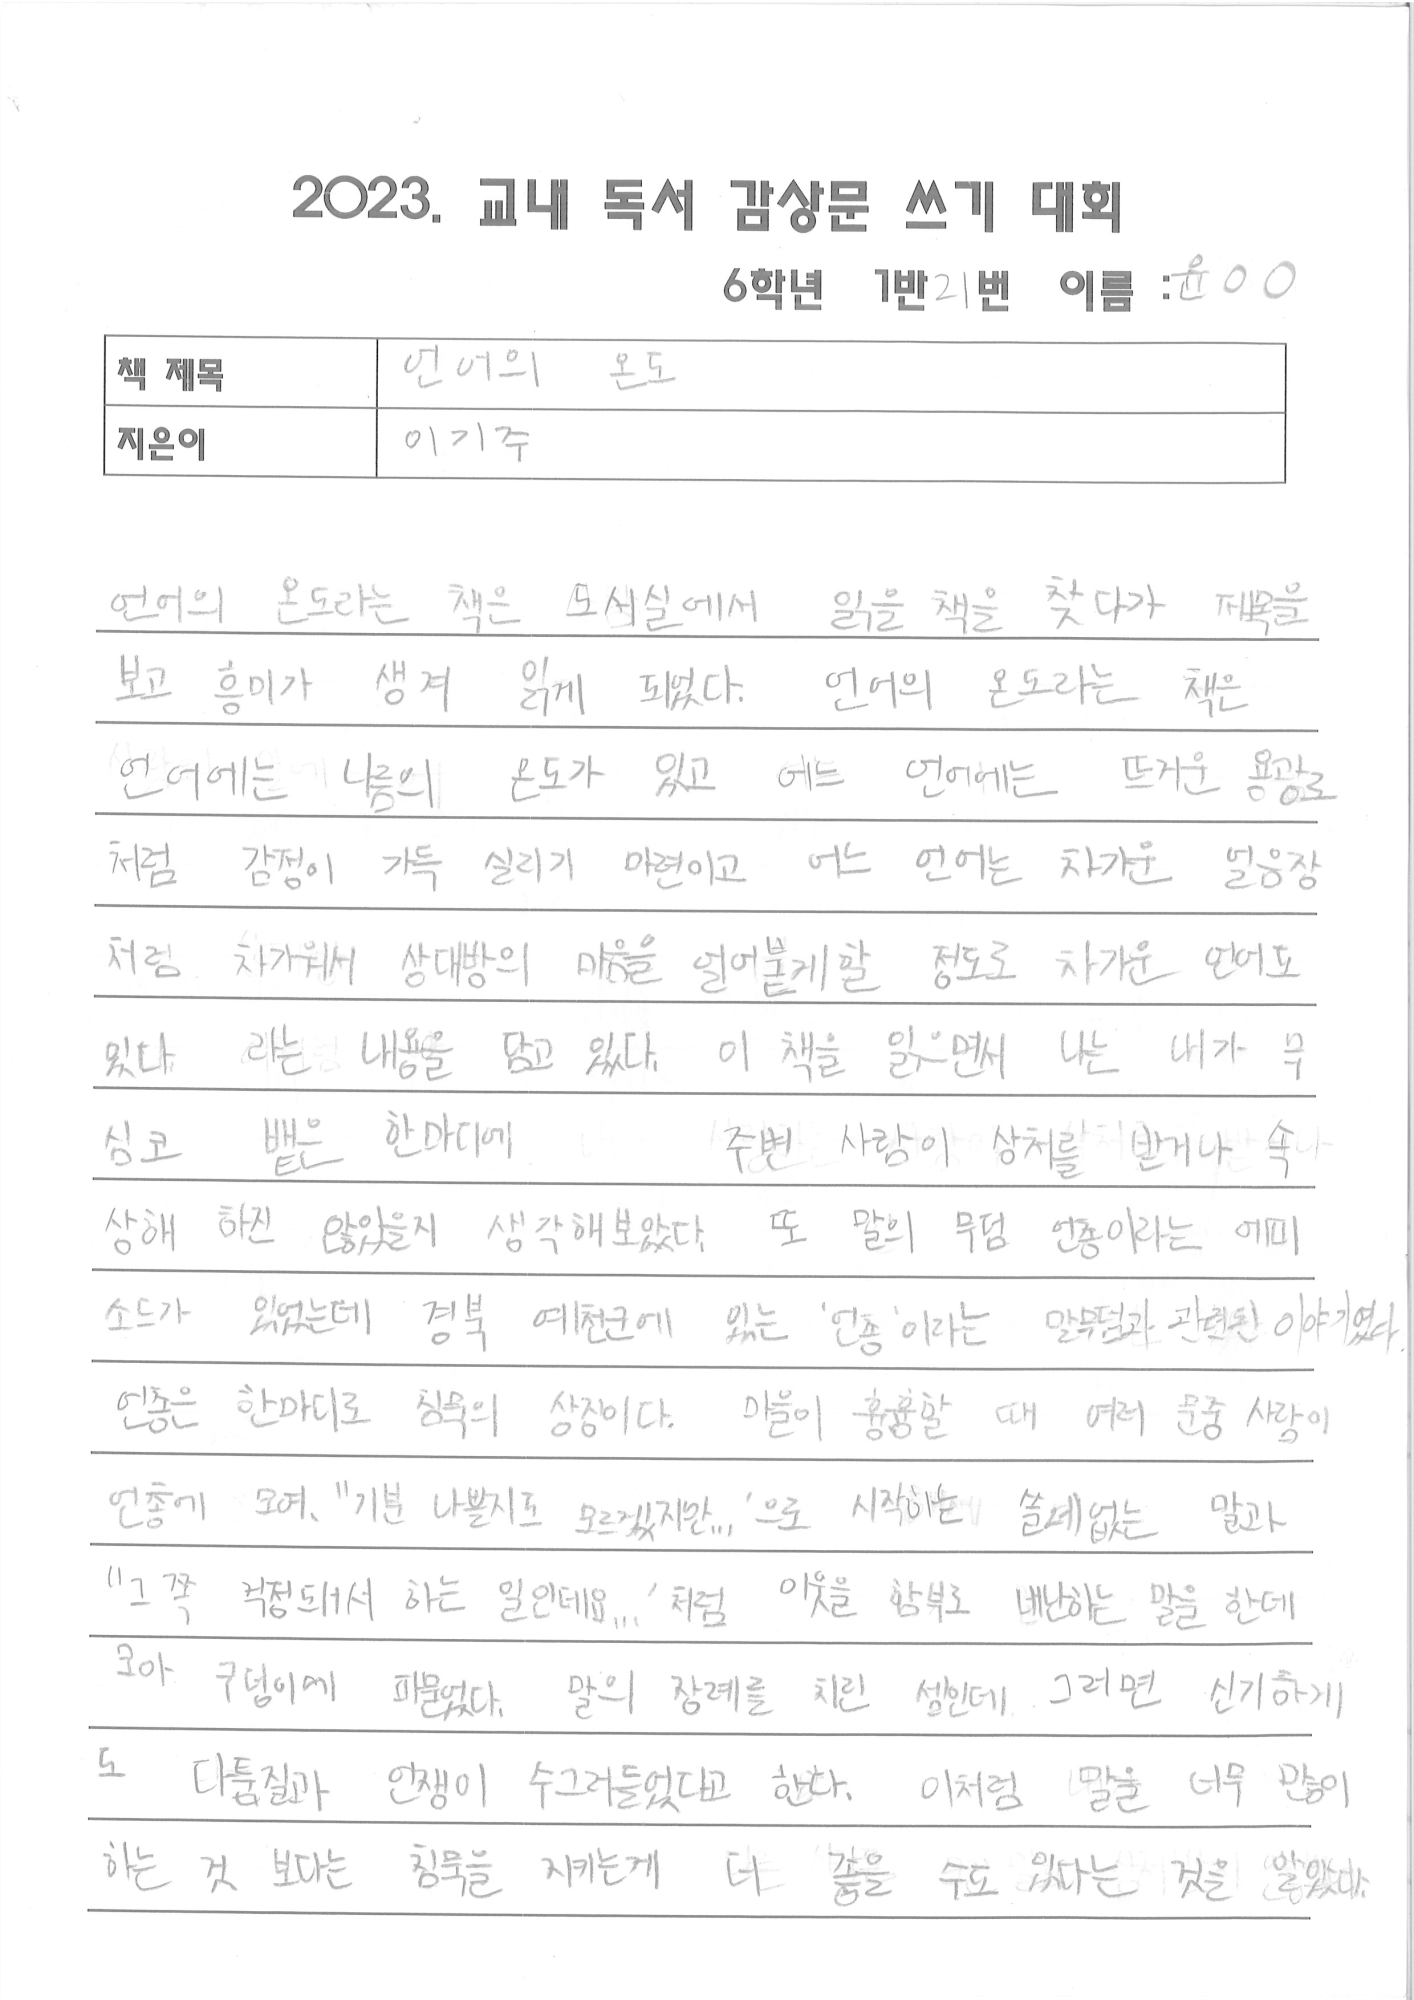 2023. 교내 독서 감상문 쓰기 대회
6학년 1반 21번 이름 : 윤○○
책 제목 언어의 온도
지은이 이기주
언어의 온도라는 책은 도서실에서 읽을 책을 찾다가 제목을
보고 흥미가 생겨 읽게 되었다. 언어의 온도라는 책은
언어에는 나름의 온도가 있고 어느 언어에는 뜨거운 용광로
처럼 감정이 가득 실리기 마련이고 어느 언어는 차가운 얼음장
처럼 차가워서 상대방의 마음을 얼어붙게할 정도로 차가운 언어도
있다 라는 내용을 담고 있다. 이 책을 읽으면서 나는 내가 무
심코 뱉은 한마디에 주변 사람이 상처를 받거나 속
상해 하진 않았을지 생각해보았다. 또 말의 무덤 언총이라는 에피
소드가 있었는데 경북 예천군에 있는 '언총'이라는 말무덤과 관련된 이야기였다.
언총은 한마디로 침묵의 상징이다. 마을이 흉흉할 때 여러 문중 사람이
언총에 모여, "기분 나쁠지도 모르겠지만...'으로 시작하는 쓸데없는 말과
"그쪽 걱정돼서 하는 일인데요...'처럼 이웃을 함부로 비난하는 말을 한데
모아 구덩이에 파묻었다. 말의 장례를 치른 셈인데 그러면 신기하게
도 다툼질과 언쟁이 수그러들었다고 한다. 이처럼 말을 너무 많이
하는 것 보다는 침묵을 지키는게 더 좋을 수도 있다는 것을 알았다.